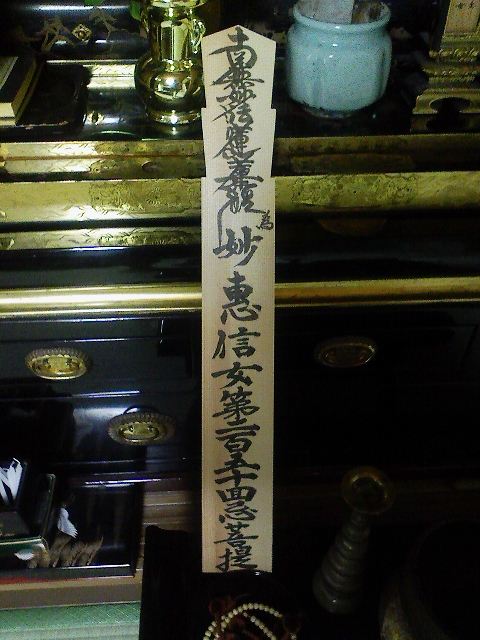 南無妙法蓮華經
為
妙惠信女第二百五十回忌菩提